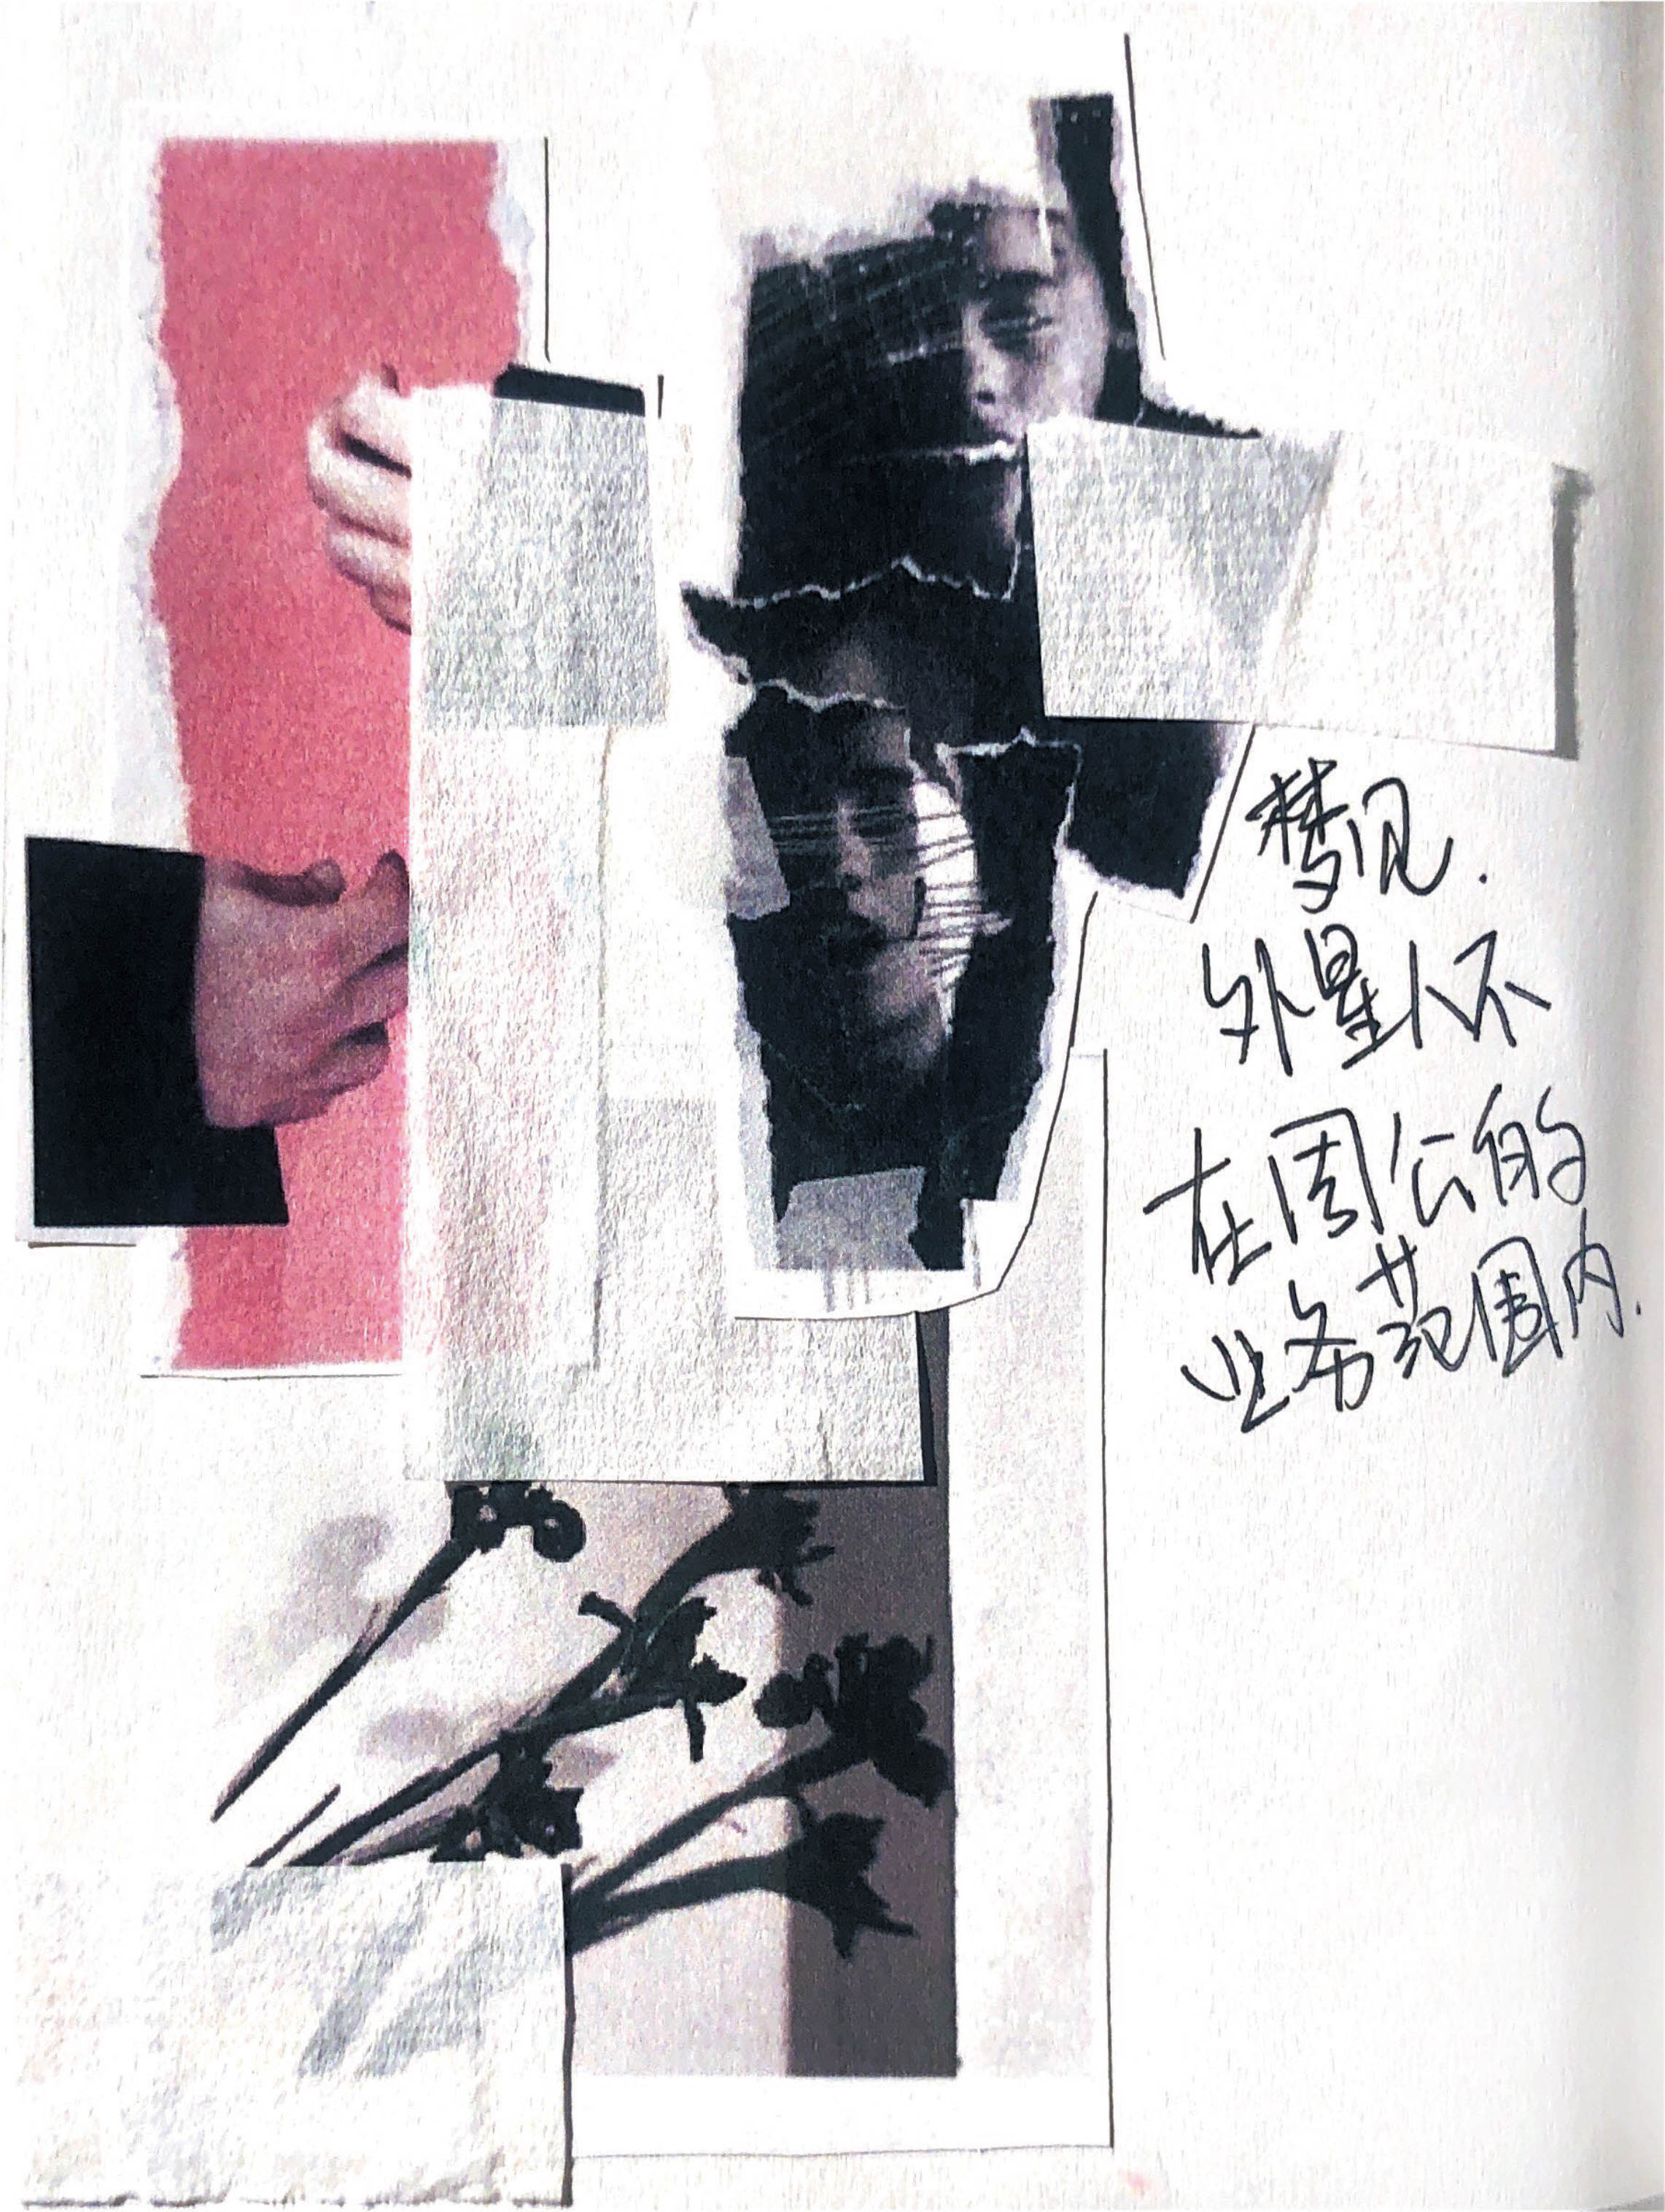 梦见.
外星人不
在周公的
业务范围内.